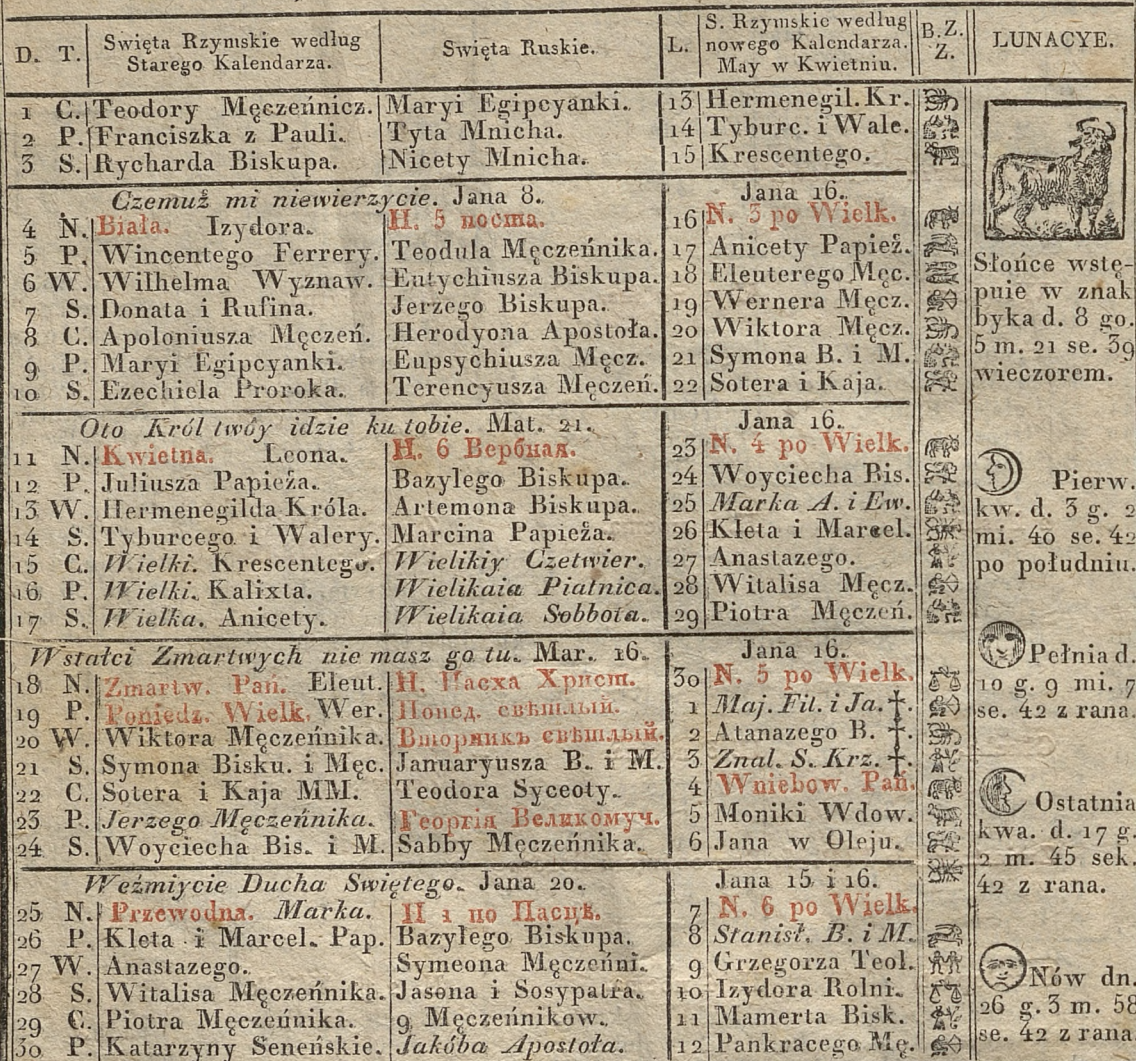 D. T. Swięta Rzymskie według Starego Kalendarza. Swięta Ruskie. L. S. Rzymskie według nowego Kalendarza. May w Kwietniu. B. Z. Z. LUNACYE.
1 C. Teodory Męczeńnicz. Maryi Egipcyanki. 13 Hermenegil. Kr.
2 P. Franciszka z Pauli. Tyta Mnicha. 14 Tyburc. i Wale.
3 S. Rycharda Biskupa. Nicety Mnicha. 15 Krescentego.
Czemuż mi niewierzycie. Jana 8. Jana 16.
4 N. Biała. Izydora. Н. 5 поста. 16 N. 3 po Wielk.
5 P. Wincentego Ferrery. Teodula Męczeńnika. 17 Anicety Papież.
6 W. Wilhelma Wyznaw. Eutychiusza Biskupa. 18 Eleuterego Męc.
7 S. Donata i Rufina. Jerzego Biskupa. 19 Wernera Męcz.
8 C. Apoloniusza Męczeń. Herodyona Apostoła. 20 Wiktora Męcz.
9 P. Maryi Egipcyanki. Eupsychiusza Męcz. 21 Symona B. i M.
10 S. Ezechiela Proroka. Terencyusza Męczeń. 22 Sotera i Kaja.
Oto Król twóy idzie ku tobie. Mat. 21. Jana 16.
11 N. Kwietna. Leona. Н. 6 Вербная. 23 N. 4 po Wielk.
12 P. Juliusza Papieża. Bazylego Biskupa. 24 Woyciecha Bis.
13 W. Hermenegilda Króla. Artemona Biskupa. 25 Marka A. i Ew.
14 S. Tyburcego i Walery. Marcina Papieża. 26 Kleta i Marcel.
15 C. Wielki. Krescentego. Wielikiy Czetwier. 27 Anastazego.
16 P. Wielki. Kalixta. Wielikaia Piatnica. 28 Witalisa Męcz.
17 S. Wielka. Anicety. Wielikaia Sobbota. 29 Piotra Męczeń.
Wstałci Zmartwych nie masz go tu. Mar. 16. Jana 16.
18 N. Zmartw. Pań. Eleut. Н. Пасха Христ. 30 N. 5 po Wielk.
19 P. Poniedz. Wielk. Wer. Понед. свѣтлый. 1 Maj. Fil. i Ja. †.
20 W. Wiktora Męczeńnika. Вторникъ свѣтлый. 2 Atanazego B. †.
21 S. Symona Bisku. i Męc. Januaryusza B. i M. 3 Znal. S. Krz. †.
22 C. Sotera i Kaja MM. Teodora Syceoty. 4 Wniebow. Pań.
23 P. Jerzego Męczeńnika. Георгія Великомуч. 5 Moniki Wdow.
24 S. Woyciecha Bis. i M. Sabby Męczeńnika. 6 Jana w Oleju.
Weźmiycie Ducha Swiętego. Jana 20. Jana 15 i 16.
25 N. Przewodna. Marka. Н 1 по Пасцѣ. 7 N. 6 po Wielk.
26 P. Kleta i Marcel. Pap. Bazylego Biskupa. 8 Stanisł. B. i M.
27 W. Anastazego. Symeona Męczeńni. 9 Grzegorza Teol.
28 S. Witalisa Męczeńnika. Jasona i Sosypatra. 10 Izydora Rolni.
29 C. Piotra Męczeńnika. 9 Męczeńnikow. 11 Mamerta Bisk.
30 P. Katarzyny Seneńskie. Jakóba Apostoła. 12 Pankracego Mę.
Słońce wstę-
puie w znak
byka d. 8 go.
5 m. 21 se. 39
wieczorem.
Pierw.
kw. d. 3 g. 2
mi. 40 se. 42
po południu.
Pełnia d.
10 g. 9 mi. 7
se. 42 z rana.
Ostatnia
kwa. d. 17 g.
2 m. 45 sek.
42 z rana.
Nów dn.
26 g. 3 m. 58
se. 42 z rana